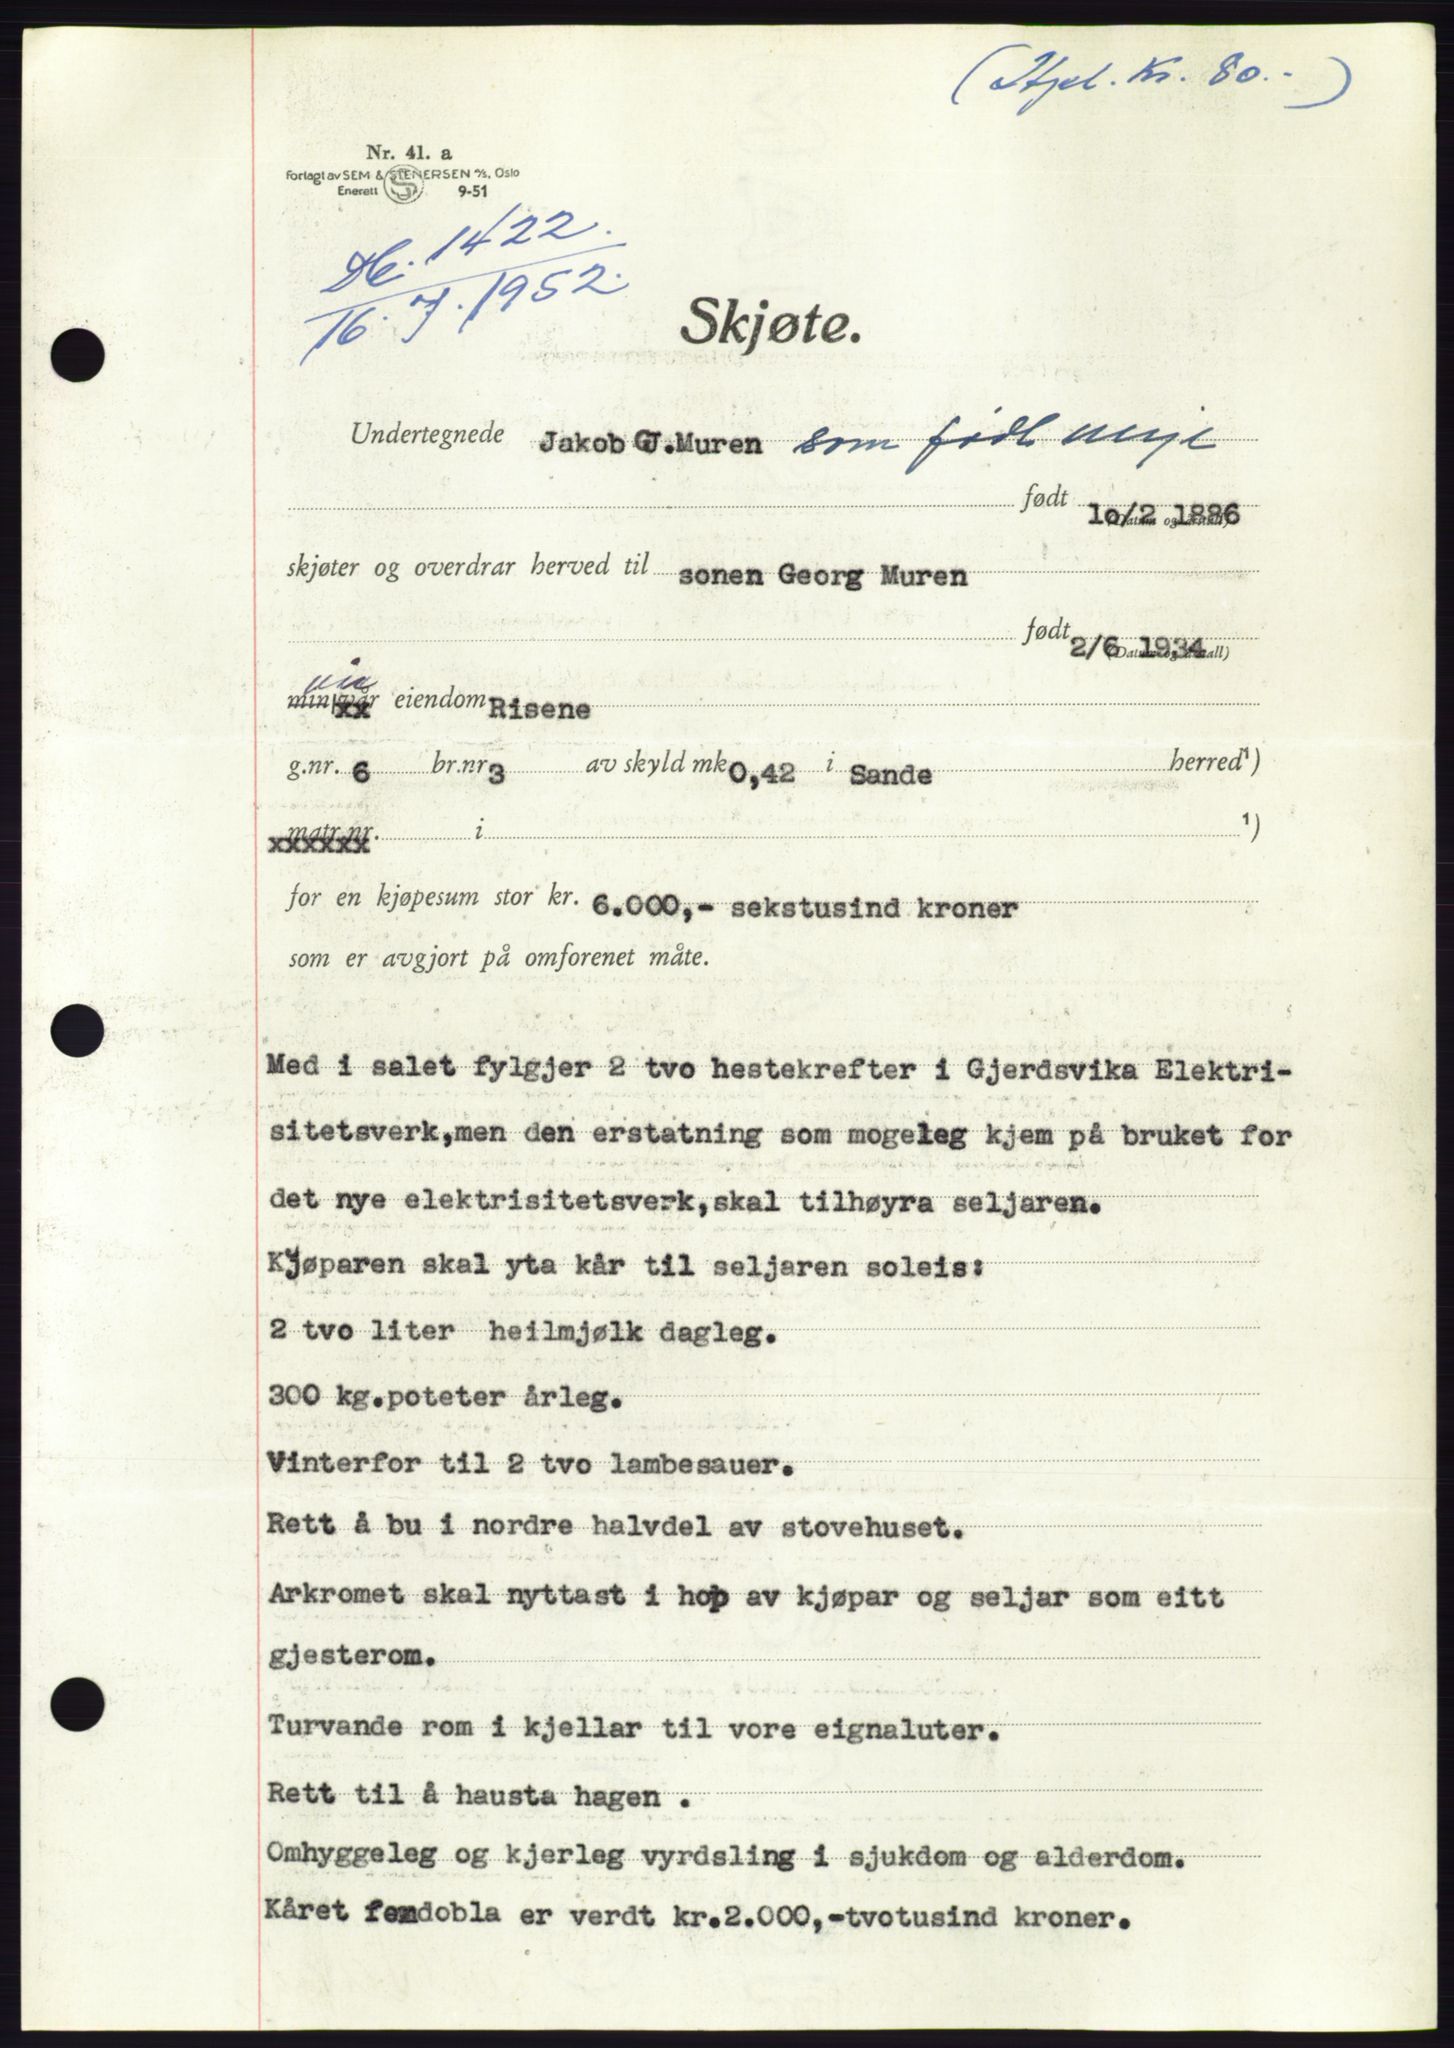 (Stpl. Kr. 80.-)
Nr. 41. a
Forlagt av SEM & STENERSEN A/S, Oslo
Enerett 9-51
Db. 1422.
16. 7. 1952.
Skjøte.
Undertegnede Jakob G.Muren som
født 10/2 1886
(Datum og årstall)
skjøter og overdrar herved til sonen Georg Muren
født 2/6 1934
(Datum og årstall)
min/vår eiendom Risene
g.nr. 6 br.nr 3 av skyld mk 0,42 i Sande herred ¹)
matr.nr. i ¹)
for en kjøpesum stor kr. 6.000,- sekstusind kroner
som er avgjort på omforenet måte.
Med i salet fylgjer 2 tvo hestekrefter i Gjerdsvika Elektri-
sitetsverk,men den erstatning som mogeleg kjem på bruket for
det nye elektrisitetsverk,skal tilhøyra seljaren.
Kjøparen skal yta kår til seljaren soleis:
2 tvo liter heilmjølk dagleg.
300 kg.poteter årleg.
Vinterfor til 2 tvo lambesauer.
Rett å bu i nordre halvdel av stovehuset.
Arkromet skal nyttast i hop av kjøpar og seljar som eitt
gjesterom.
Turvande rom i kjellar til vore eignaluter.
Rett til å hausta hagen .
Omhyggeleg og kjerleg vyrdsling i sjukdom og alderdom.
Kåret femdobla er verdt kr.2.000,-tvotusind kroner.